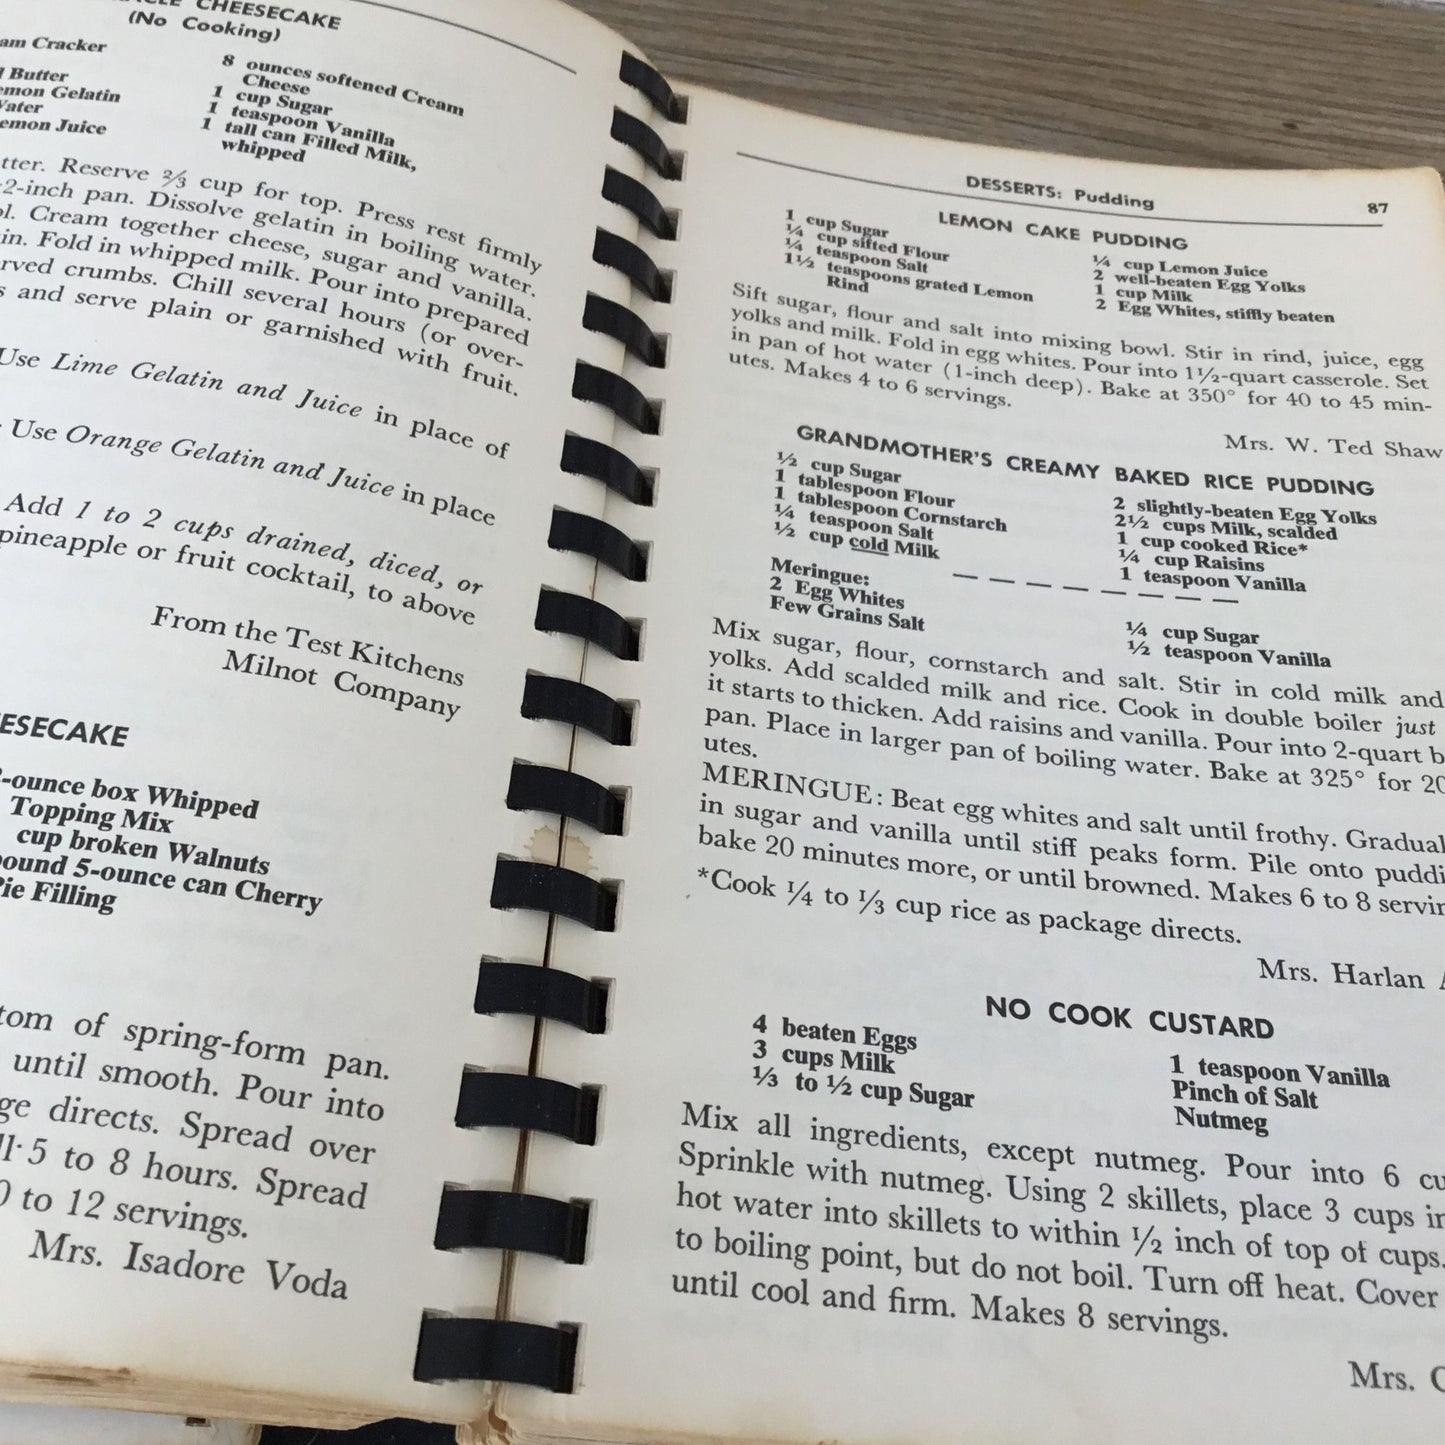 CHEESECAKE
(No Cooking)
Cracker
Butter
Gelatin
Juice
8 ounces softened Cream
Cheese
1 cup Sugar
1 teaspoon Vanilla
1 tall can Filled Milk,
whipped
Reserve ⅔ cup for top. Press rest firmly
2-inch pan. Dissolve gelatin in boiling water.
Cream together cheese, sugar and vanilla.
Fold in whipped milk. Pour into prepared
crumbs. Chill several hours (or over-
and serve plain or garnished with fruit.
Use Lime Gelatin and Juice in place of
Use Orange Gelatin and Juice in place
Add 1 to 2 cups drained, diced, or
pineapple or fruit cocktail, to above
From the Test Kitchens
Milnot Company
-ounce box Whipped
Topping Mix
cup broken Walnuts
5-ounce can Cherry
Filling
of spring-form pan.
until smooth. Pour into
directs. Spread over
5 to 8 hours. Spread
to 12 servings.
Mrs. Isadore Voda
DESSERTS: Pudding
87
LEMON CAKE PUDDING
1 cup Sugar
¼ cup sifted Flour
¼ teaspoon Salt
1½ teaspoons grated Lemon
Rind
¼ cup Lemon Juice
2 well-beaten Egg Yolks
1 cup Milk
2 Egg Whites, stiffly beaten
Sift sugar, flour and salt into mixing bowl. Stir in rind, juice, egg
yolks and milk. Fold in egg whites. Pour into 1½-quart casserole. Set
in pan of hot water (1-inch deep). Bake at 350° for 40 to 45 min-
utes. Makes 4 to 6 servings.
Mrs. W. Ted Shaw
GRANDMOTHER'S CREAMY BAKED RICE PUDDING
½ cup Sugar
1 tablespoon Flour
1 tablespoon Cornstarch
¼ teaspoon Salt
½ cup cold Milk
2 slightly-beaten Egg Yolks
2½ cups Milk, scalded
1 cup cooked Rice*
¼ cup Raisins
1 teaspoon Vanilla
Meringue:
2 Egg Whites
Few Grains Salt
¼ cup Sugar
½ teaspoon Vanilla
Mix sugar, flour, cornstarch and salt. Stir in cold milk and
yolks. Add scalded milk and rice. Cook in double boiler just
it starts to thicken. Add raisins and vanilla. Pour into 2-quart
pan. Place in larger pan of boiling water. Bake at 325° for 20
utes.
MERINGUE: Beat egg whites and salt until frothy.
in sugar and vanilla until stiff peaks form. Pile onto
bake 20 minutes more, or until browned. Makes 6 to 8
*Cook ¼ to ⅓ cup rice as package directs.
Mrs. Harlan
NO COOK CUSTARD
4 beaten Eggs
3 cups Milk
⅓ to ½ cup Sugar
1 teaspoon Vanilla
Pinch of Salt
Nutmeg
Mix all ingredients, except nutmeg. Pour into 6
Sprinkle with nutmeg. Using 2 skillets, place 3 cups
hot water into skillets to within ½ inch of top of cups.
to boiling point, but do not boil. Turn off heat. Cover
until cool and firm. Makes 8 servings.
Mrs.